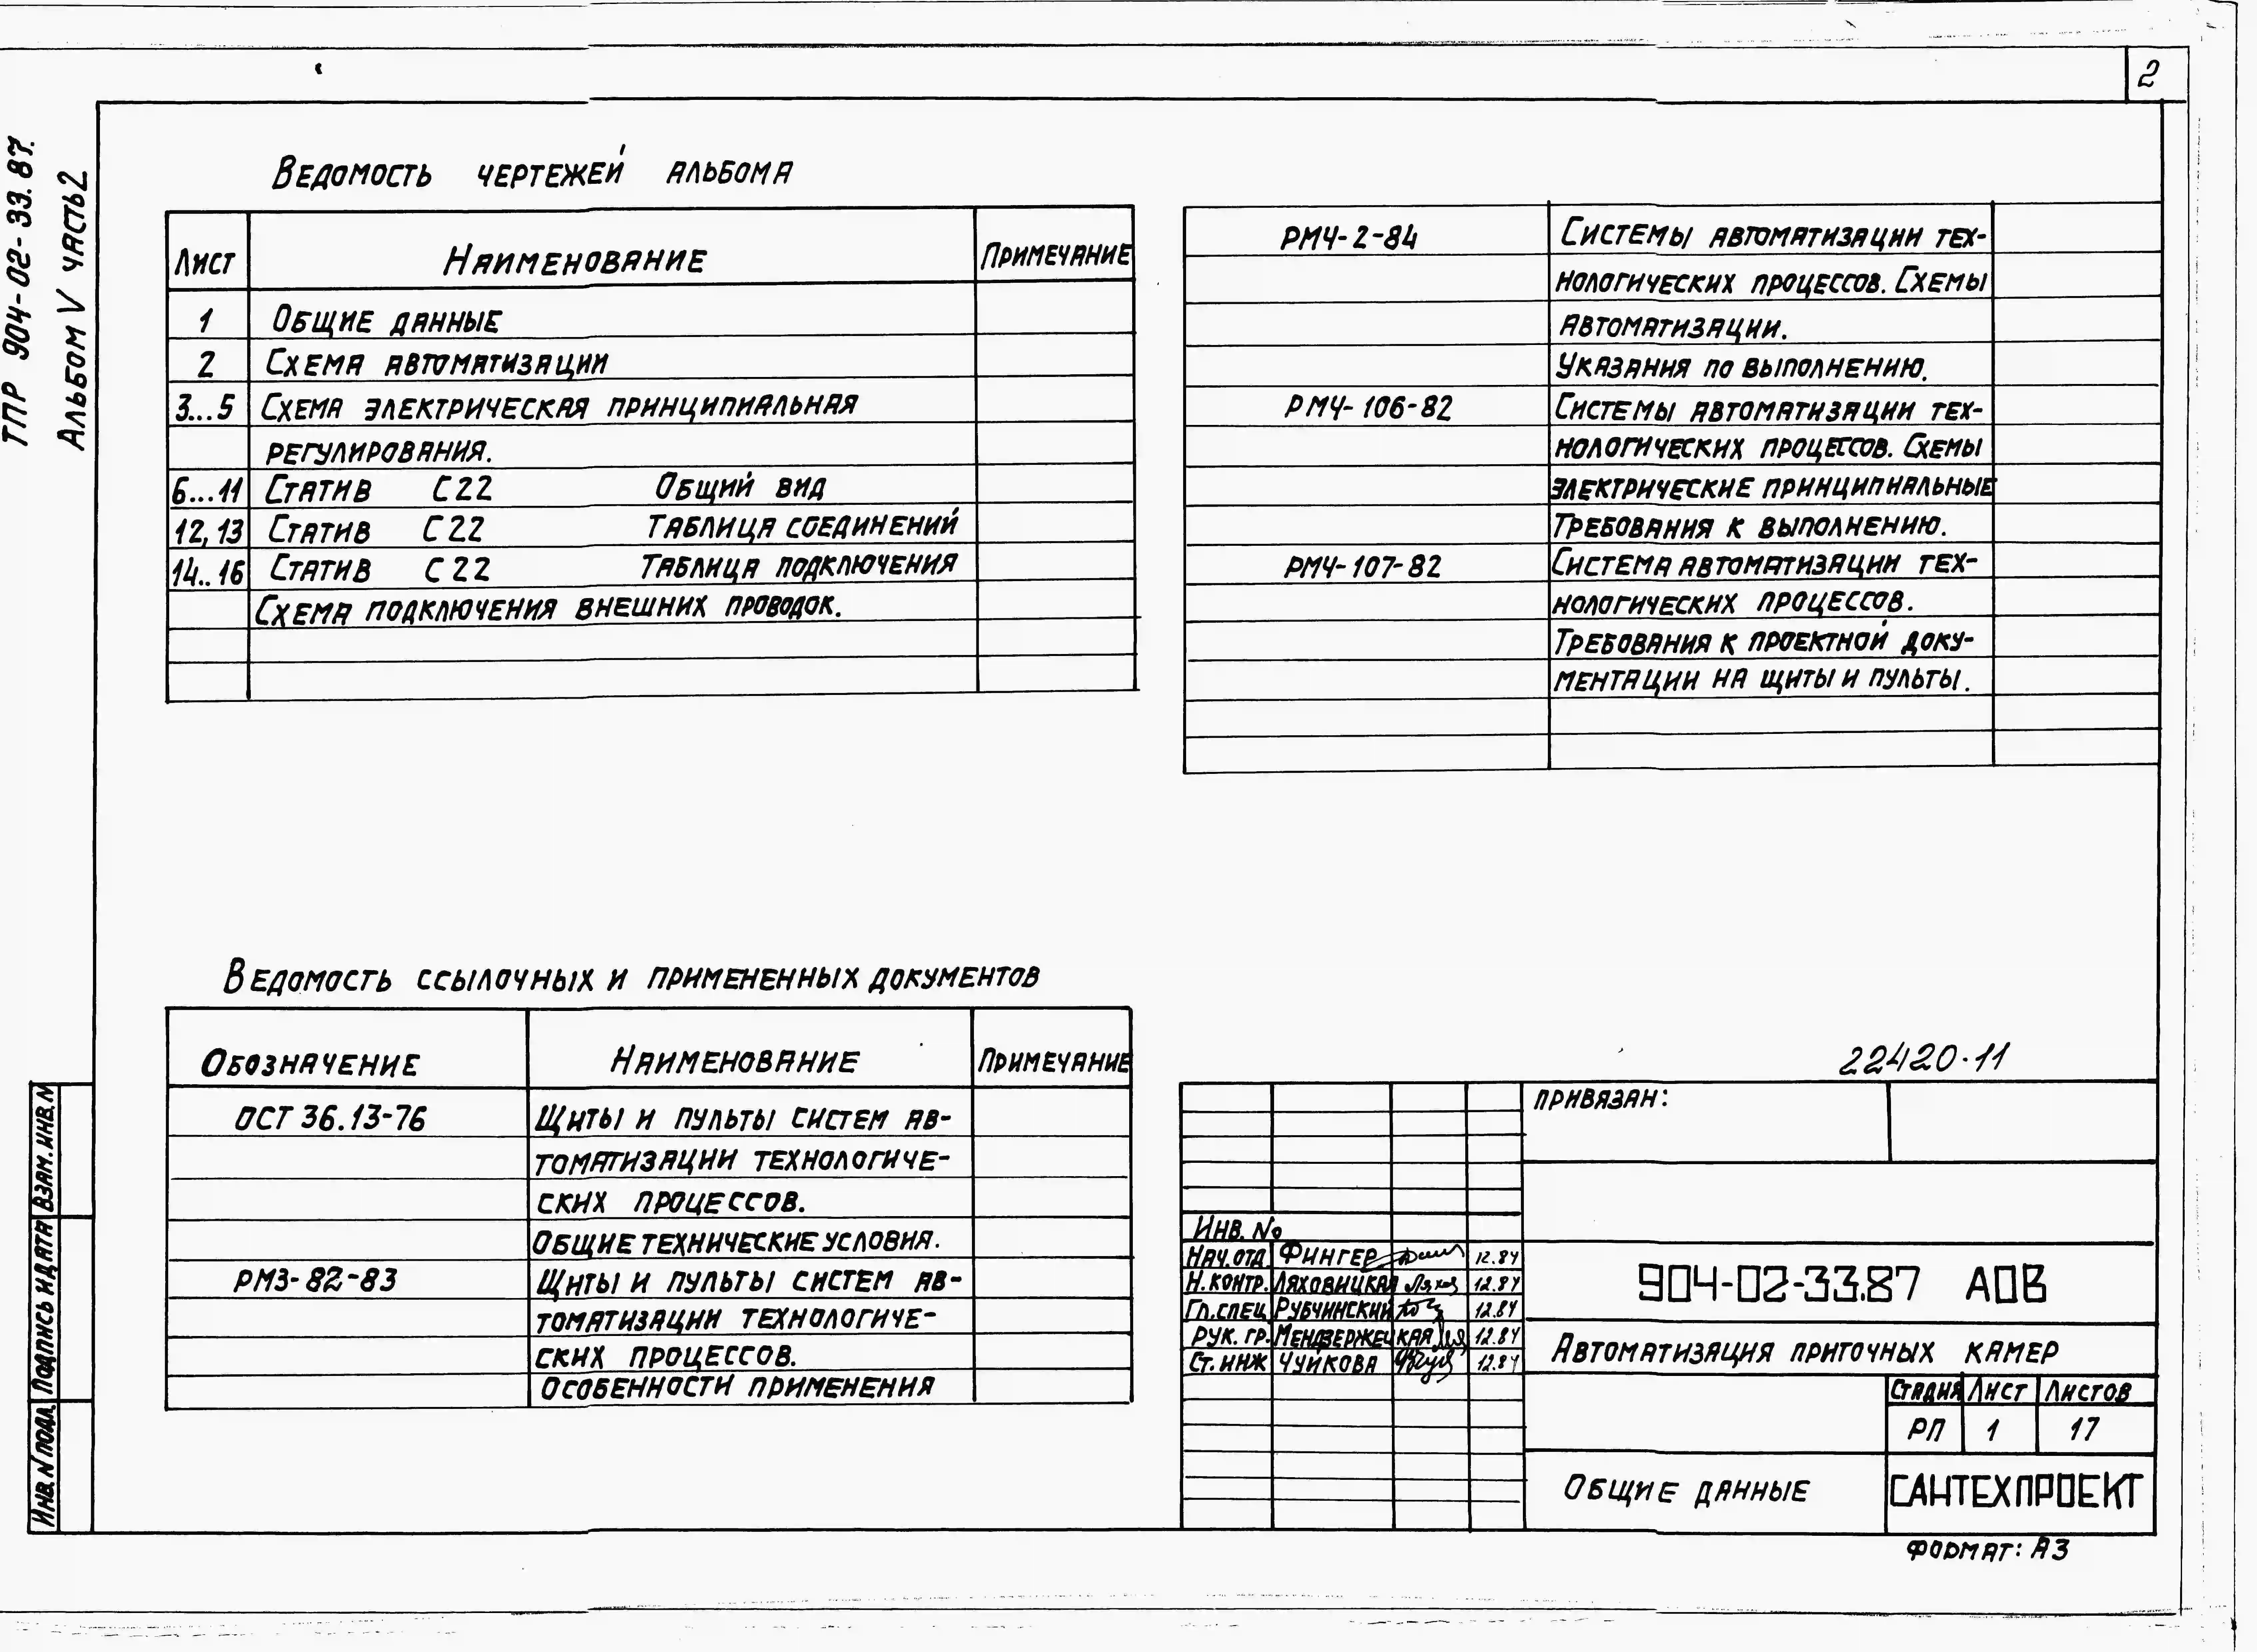 2
ТПР 904-02-33.87.
Альбом V часть 2
Ведомость чертежей альбома
Лист Наименование Примечание
1 Общие данные
2 Схема автоматизации
3...5 Схема электрическая принципиальная
регулирования.
6...11 Статив С22 Общий вид
12,13 Статив С22 Таблица соединений
14..16 Статив С22 Таблица подключения
Схема подключения внешних проводок.
РМ4-2-84 Системы автоматизации тех-
нологических процессов. Схемы
автоматизации.
Указания по выполнению.
РМ4-106-82 Системы автоматизации тех-
нологических процессов. Схемы
электрические принципиальные
Требования к выполнению.
РМ4-107-82 Система автоматизации тех-
нологических процессов.
Требования к проектной доку-
ментации на щиты и пульты.
Ведомость ссылочных и примененных документов
Обозначение Наименование Примечание
ОСТ 36.13-76 Щиты и пульты систем ав-
томатизации технологиче-
ских процессов.
Общие технические условия.
РМ3-82-83 Щиты и пульты систем ав-
томатизации технологиче-
ских процессов.
Особенности применения
22420-11
Привязан:
Инв. №
Нач.отд. Фингер 12.84
Н.контр. Ляховицкая 12.84
Гл.спец. Рубчинский 12.84
Рук. гр. Мендзержецкая 12.84
Ст. инж Чуйкова 12.84
904-02-33.87 АОВ
Автоматизация приточных камер
Стадия Лист Листов
РП 1 17
Общие данные
САНТЕХПРОЕКТ
Формат: А3
Взам. инв. №
Подпись и дата
Инв. № подл.